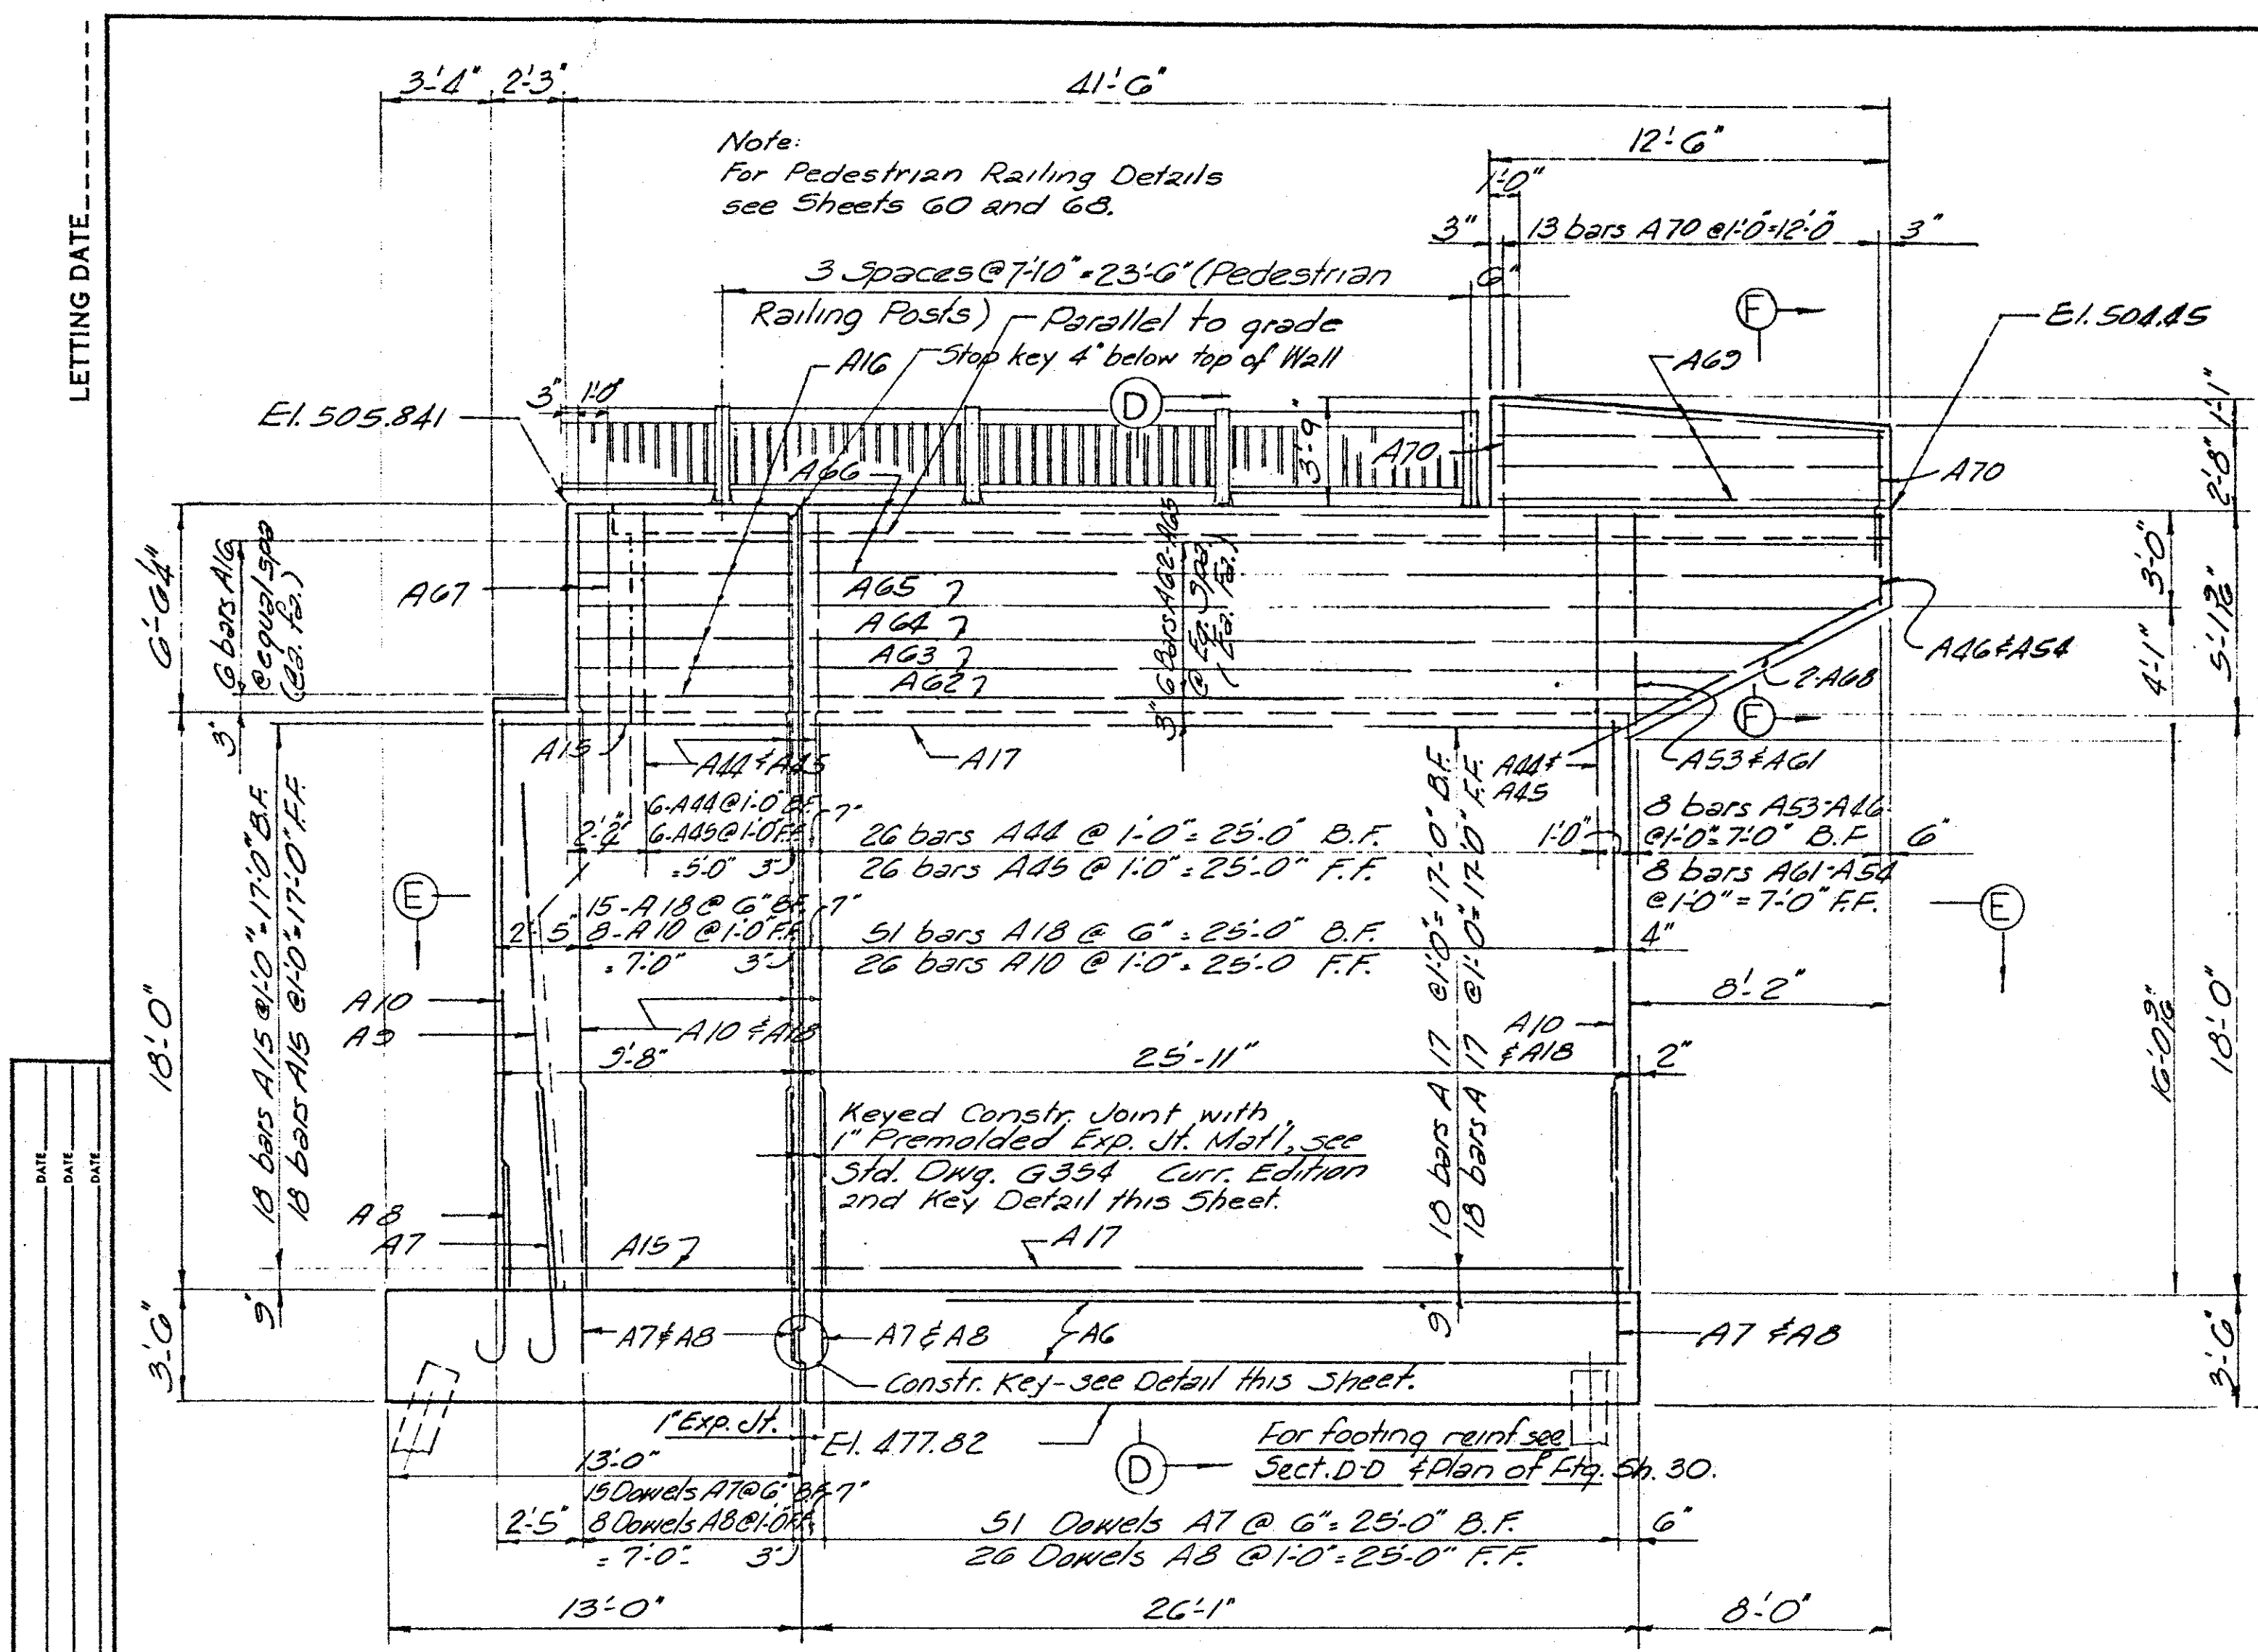 LETTING DATE
3'-4" 2'-3" 41'-6"
Note:
For Pedestrian Railing Details
see Sheets 60 and 68.
12'-6"
1'-0"
3" 13 bars A70 @1'-0"=12'-0" 3"
3 Spaces @ 7'-10" = 23'-6" (Pedestrian
Railing Posts)
6"
Parallel to grade
Stop key 4" below top of Wall
A16
F
El. 504.45
A69
3" 1'-0"
El. 505.841
D
3'-9"
A70
A70
1'-1"
2'-8"
A66
6'-6¼"
6 bars A16
@ equal spa
(ea. fa.)
3"
A67
A65
A64
A63
A62
6 Bars A62-A65
@ Eq. Spa.
(Ea. Fa.)
3"
3'-0"
4'-1"
A46 & A54
2-A68
F
A15
A44 & A45
A17
A44 &
A45
A53 & A61
6-A44 @ 1'-0" B.F. 7"
6-A45 @ 1'-0" F.F.
=5'-0" 3"
26 bars A44 @ 1'-0" = 25'-0" B.F.
26 bars A45 @ 1'-0" = 25'-0" F.F.
1'-0"
8 bars A53-A46
@1'-0"=7'-0" B.F. 6"
8 bars A61-A54
@1'-0"=7'-0" F.F.
E
E
15-A18 @ 6" B.F. 7"
2'-5" 8-A10 @ 1'-0" F.F.
=7'-0" 3"
51 bars A18 @ 6" = 25'-0" B.F.
26 bars A10 @ 1'-0" = 25'-0 F.F.
4"
8'-2"
18'-0"
18 bars A15 @1'-0"=17'-0" B.F.
18 bars A15 @1'-0"=17'-0" F.F.
9"
18 bars A17 @1'-0"=17'-0" B.F.
18 bars A17 @1'-0"=17'-0" F.F.
9"
18'-0"
A10
A9
A10 & A18
A10
& A18
9'-8" 25'-11" 2"
Keyed Constr. Joint with
1" Premolded Exp. Jt. Mat'l, see
Std. Dwg. G354 Curr. Edition
and Key Detail this Sheet.
A8
A7
A15
A17
3'-6"
A7 & A8
A7 & A8
A6
A7 & A8
3'-6"
Constr. Key-see Detail this Sheet.
1" Exp. Jt.
El. 477.82
D
For footing reinf. see
Sect. D-D & Plan of Ftg. Sh. 30.
13'-0"
15 Dowels A7 @ 6" B.F. 7"
2'-5" 8 Dowels A8 @1'-0" F.F.
=7'-0" 3"
51 Dowels A7 @ 6" = 25'-0" B.F.
26 Dowels A8 @ 1'-0" = 25'-0" F.F.
6"
13'-0" 26'-1" 8'-0"
DATE
DATE
DATE